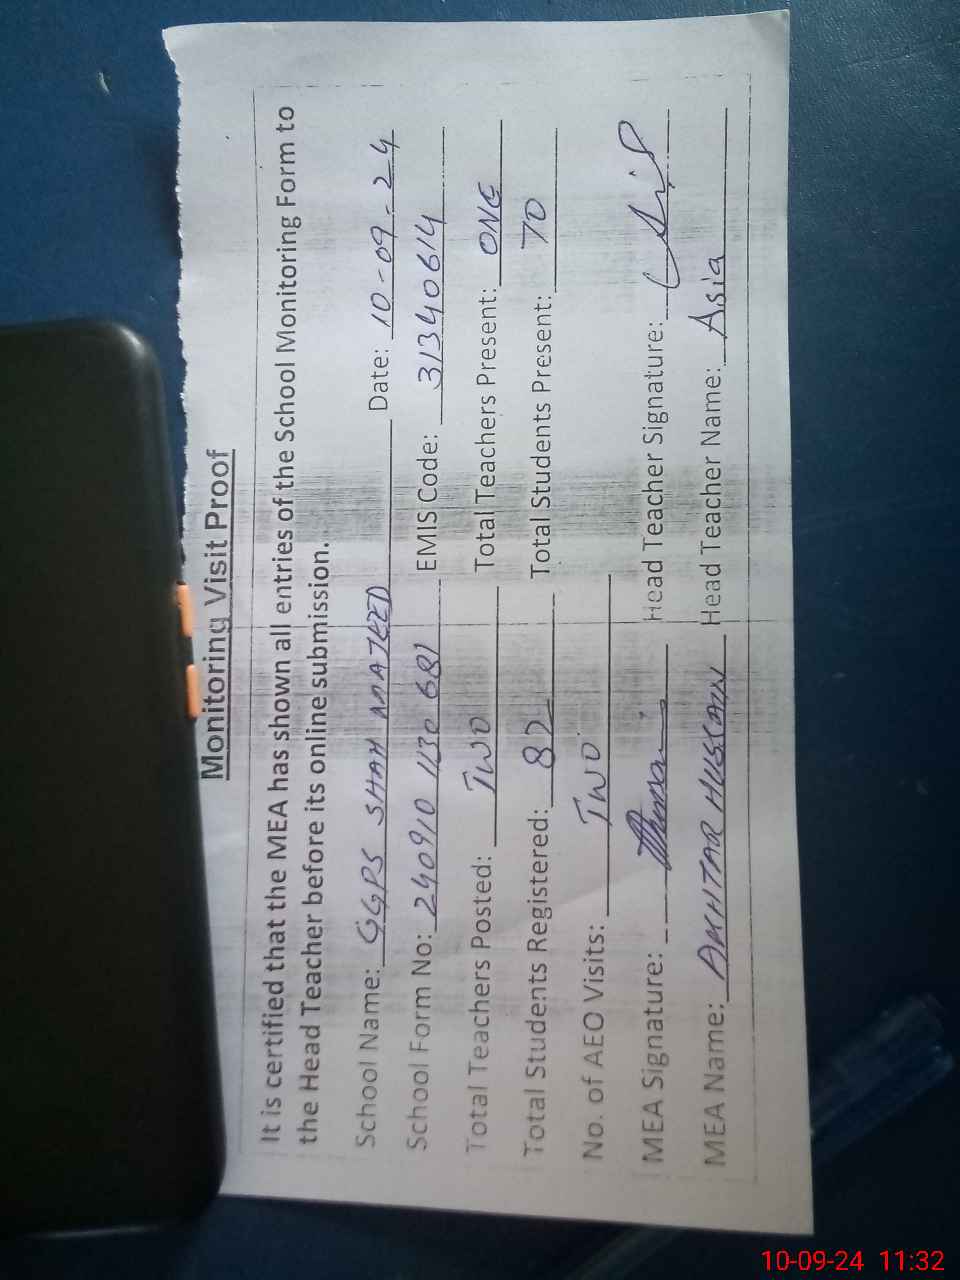 Monitoring Visit Proof
It is certified that the MEA has shown all entries of the School Monitoring Form to
the Head Teacher before its online submission.
School Name: GGPS SHAH MAJEED Date: 10-09-24
School Form No: 240910 1130 681 EMIS Code: 31340614
Total Teachers Posted: TWO Total Teachers Present: ONE
Total Students Registered: 82 Total Students Present: 70
No. of AEO Visits: TWO
MEA Signature: Head Teacher Signature:
MEA Name: AKHTAR HUSSAIN Head Teacher Name: Asia
10-09-24 11:32